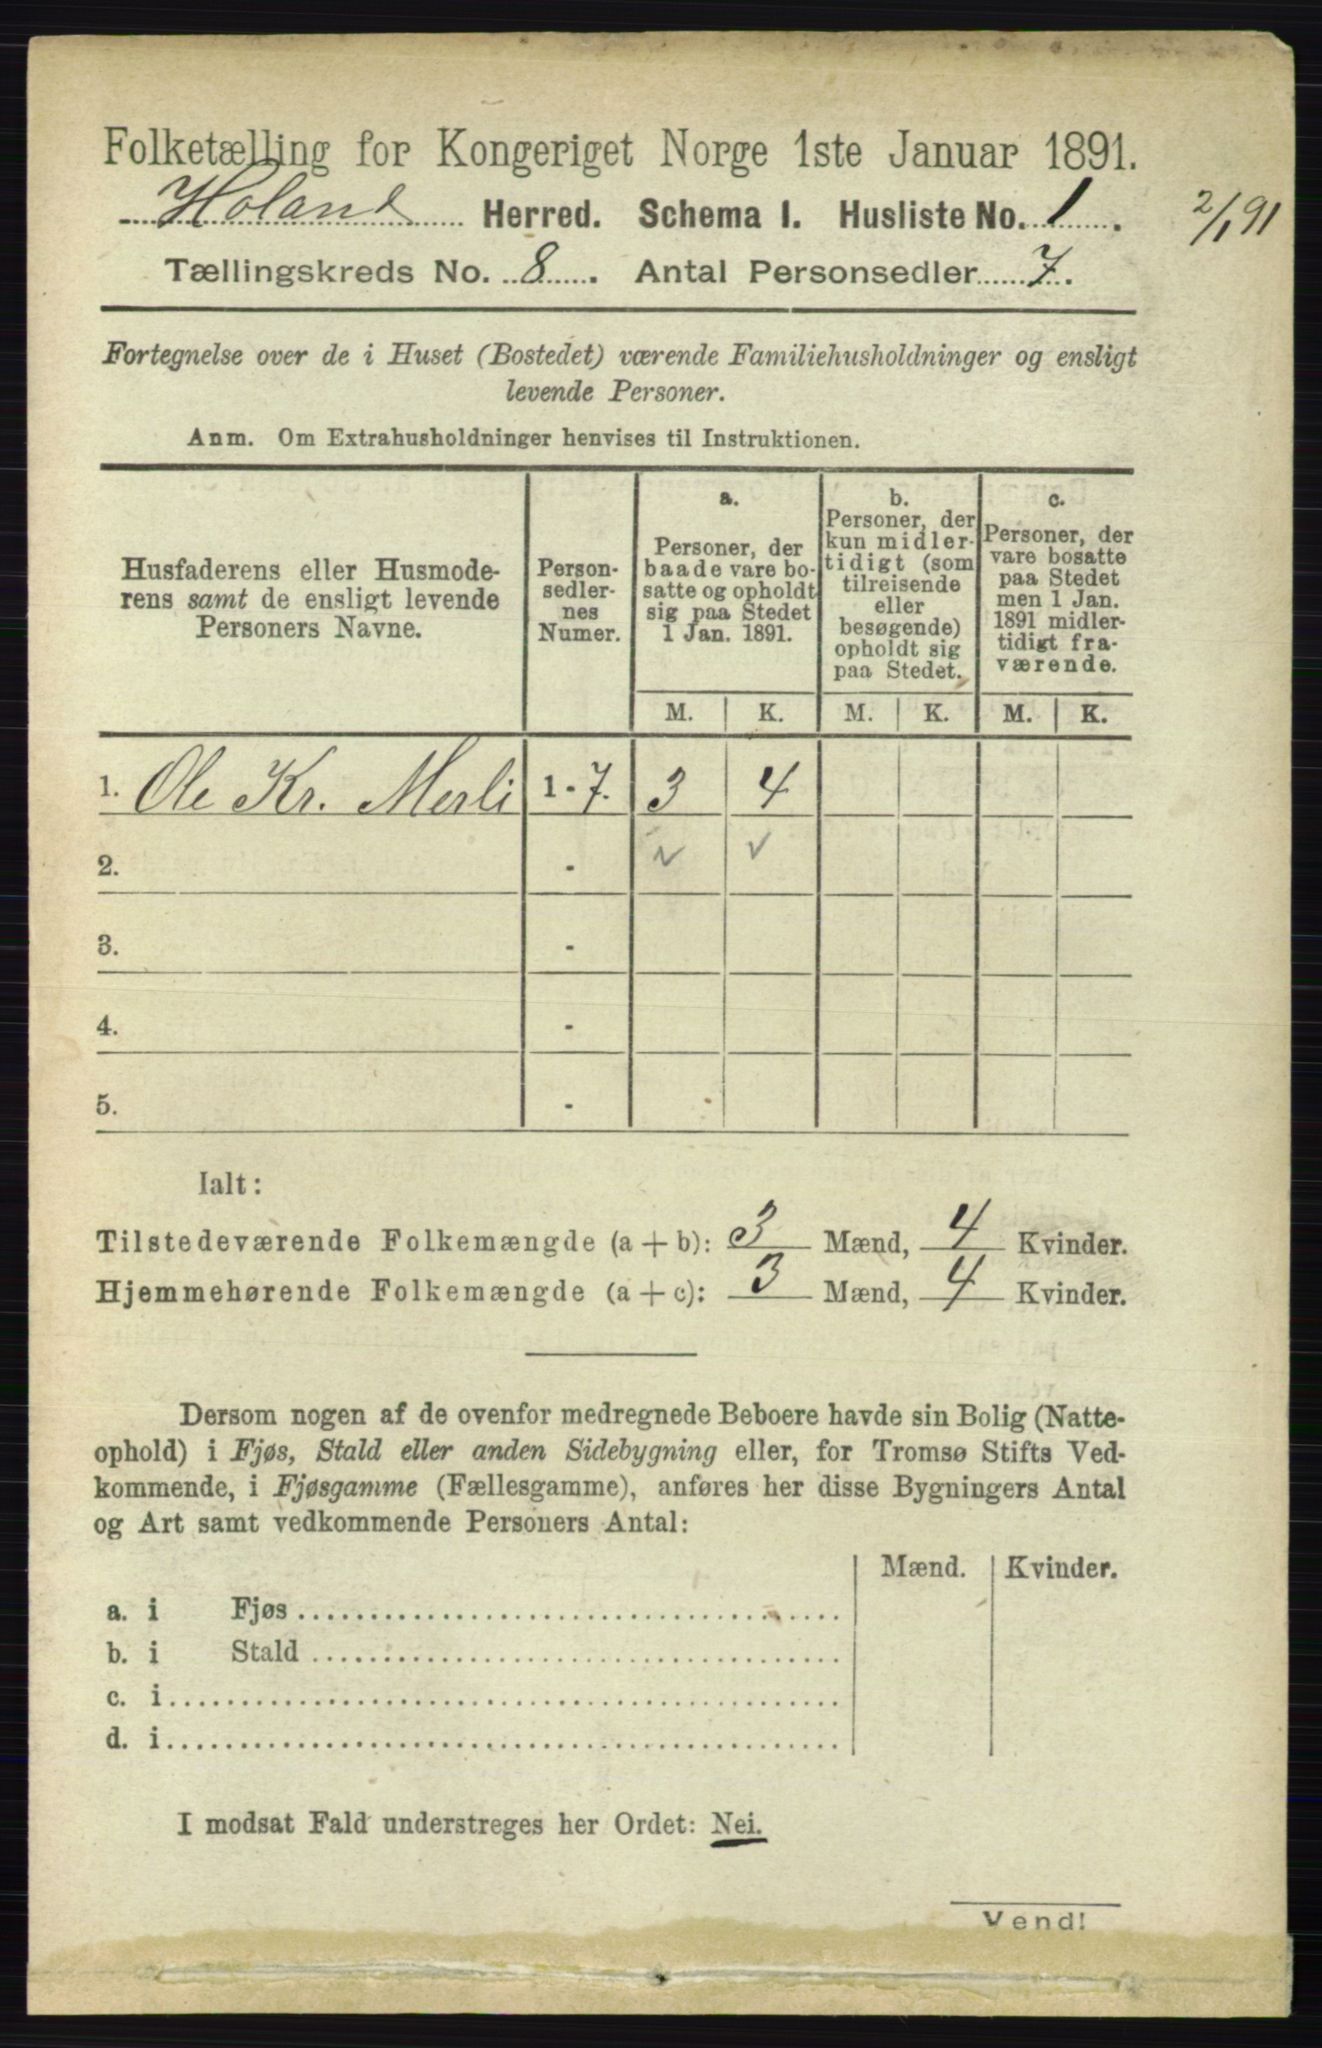 Folketælling for Kongeriget Norge 1ste Januar 1891.
Høland Herred. Schema 1. Husliste No. 1. 2/1 91
Tællingskreds No. 8. Antal Personsedler 7.
Fortegnelse over de i Huset (Bostedet) værende Familiehusholdninger og ensligt
levende Personer.
Anm. Om Extrahusholdninger henvises til Instruktionen.
Husfaderens eller Husmode-
rens samt de ensligt levende
Personers Navne.
Person-
sedler-
nes
Numer.
a.
Personer, der
baade vare bo-
satte og opholdt
sig paa Stedet
1 Jan. 1891.
b.
Personer, der
kun midler-
tidigt (som
tilreisende
eller
besøgende)
opholdt sig
paa Stedet.
c.
Personer, der
vare bosatte
paa Stedet
men 1 Jan.
1891 midler-
tidigt fra-
værende.
M. K. M. K. M. K.
1. Ole Kr. Merli 1 - 7. 3 4
2. -
3. -
4. -
5. -
Ialt:
Tilstedeværende Folkemængde (a + b): 3 Mænd, 4 Kvinder.
Hjemmehørende Folkemængde (a + c): 3 Mænd, 4 Kvinder.
Dersom nogen af de ovenfor medregnede Beboere havde sin Bolig (Natte-
ophold) i Fjøs, Stald eller anden Sidebygning eller, for Tromsø Stifts Ved-
kommende, i Fjøsgamme (Fællesgamme), anføres her disse Bygningers Antal
og Art samt vedkommende Personers Antal:
Mænd. Kvinder.
a. i Fjøs
b. i Stald
c. i
d. i
I modsat Fald understreges her Ordet: Nei.
Vend!